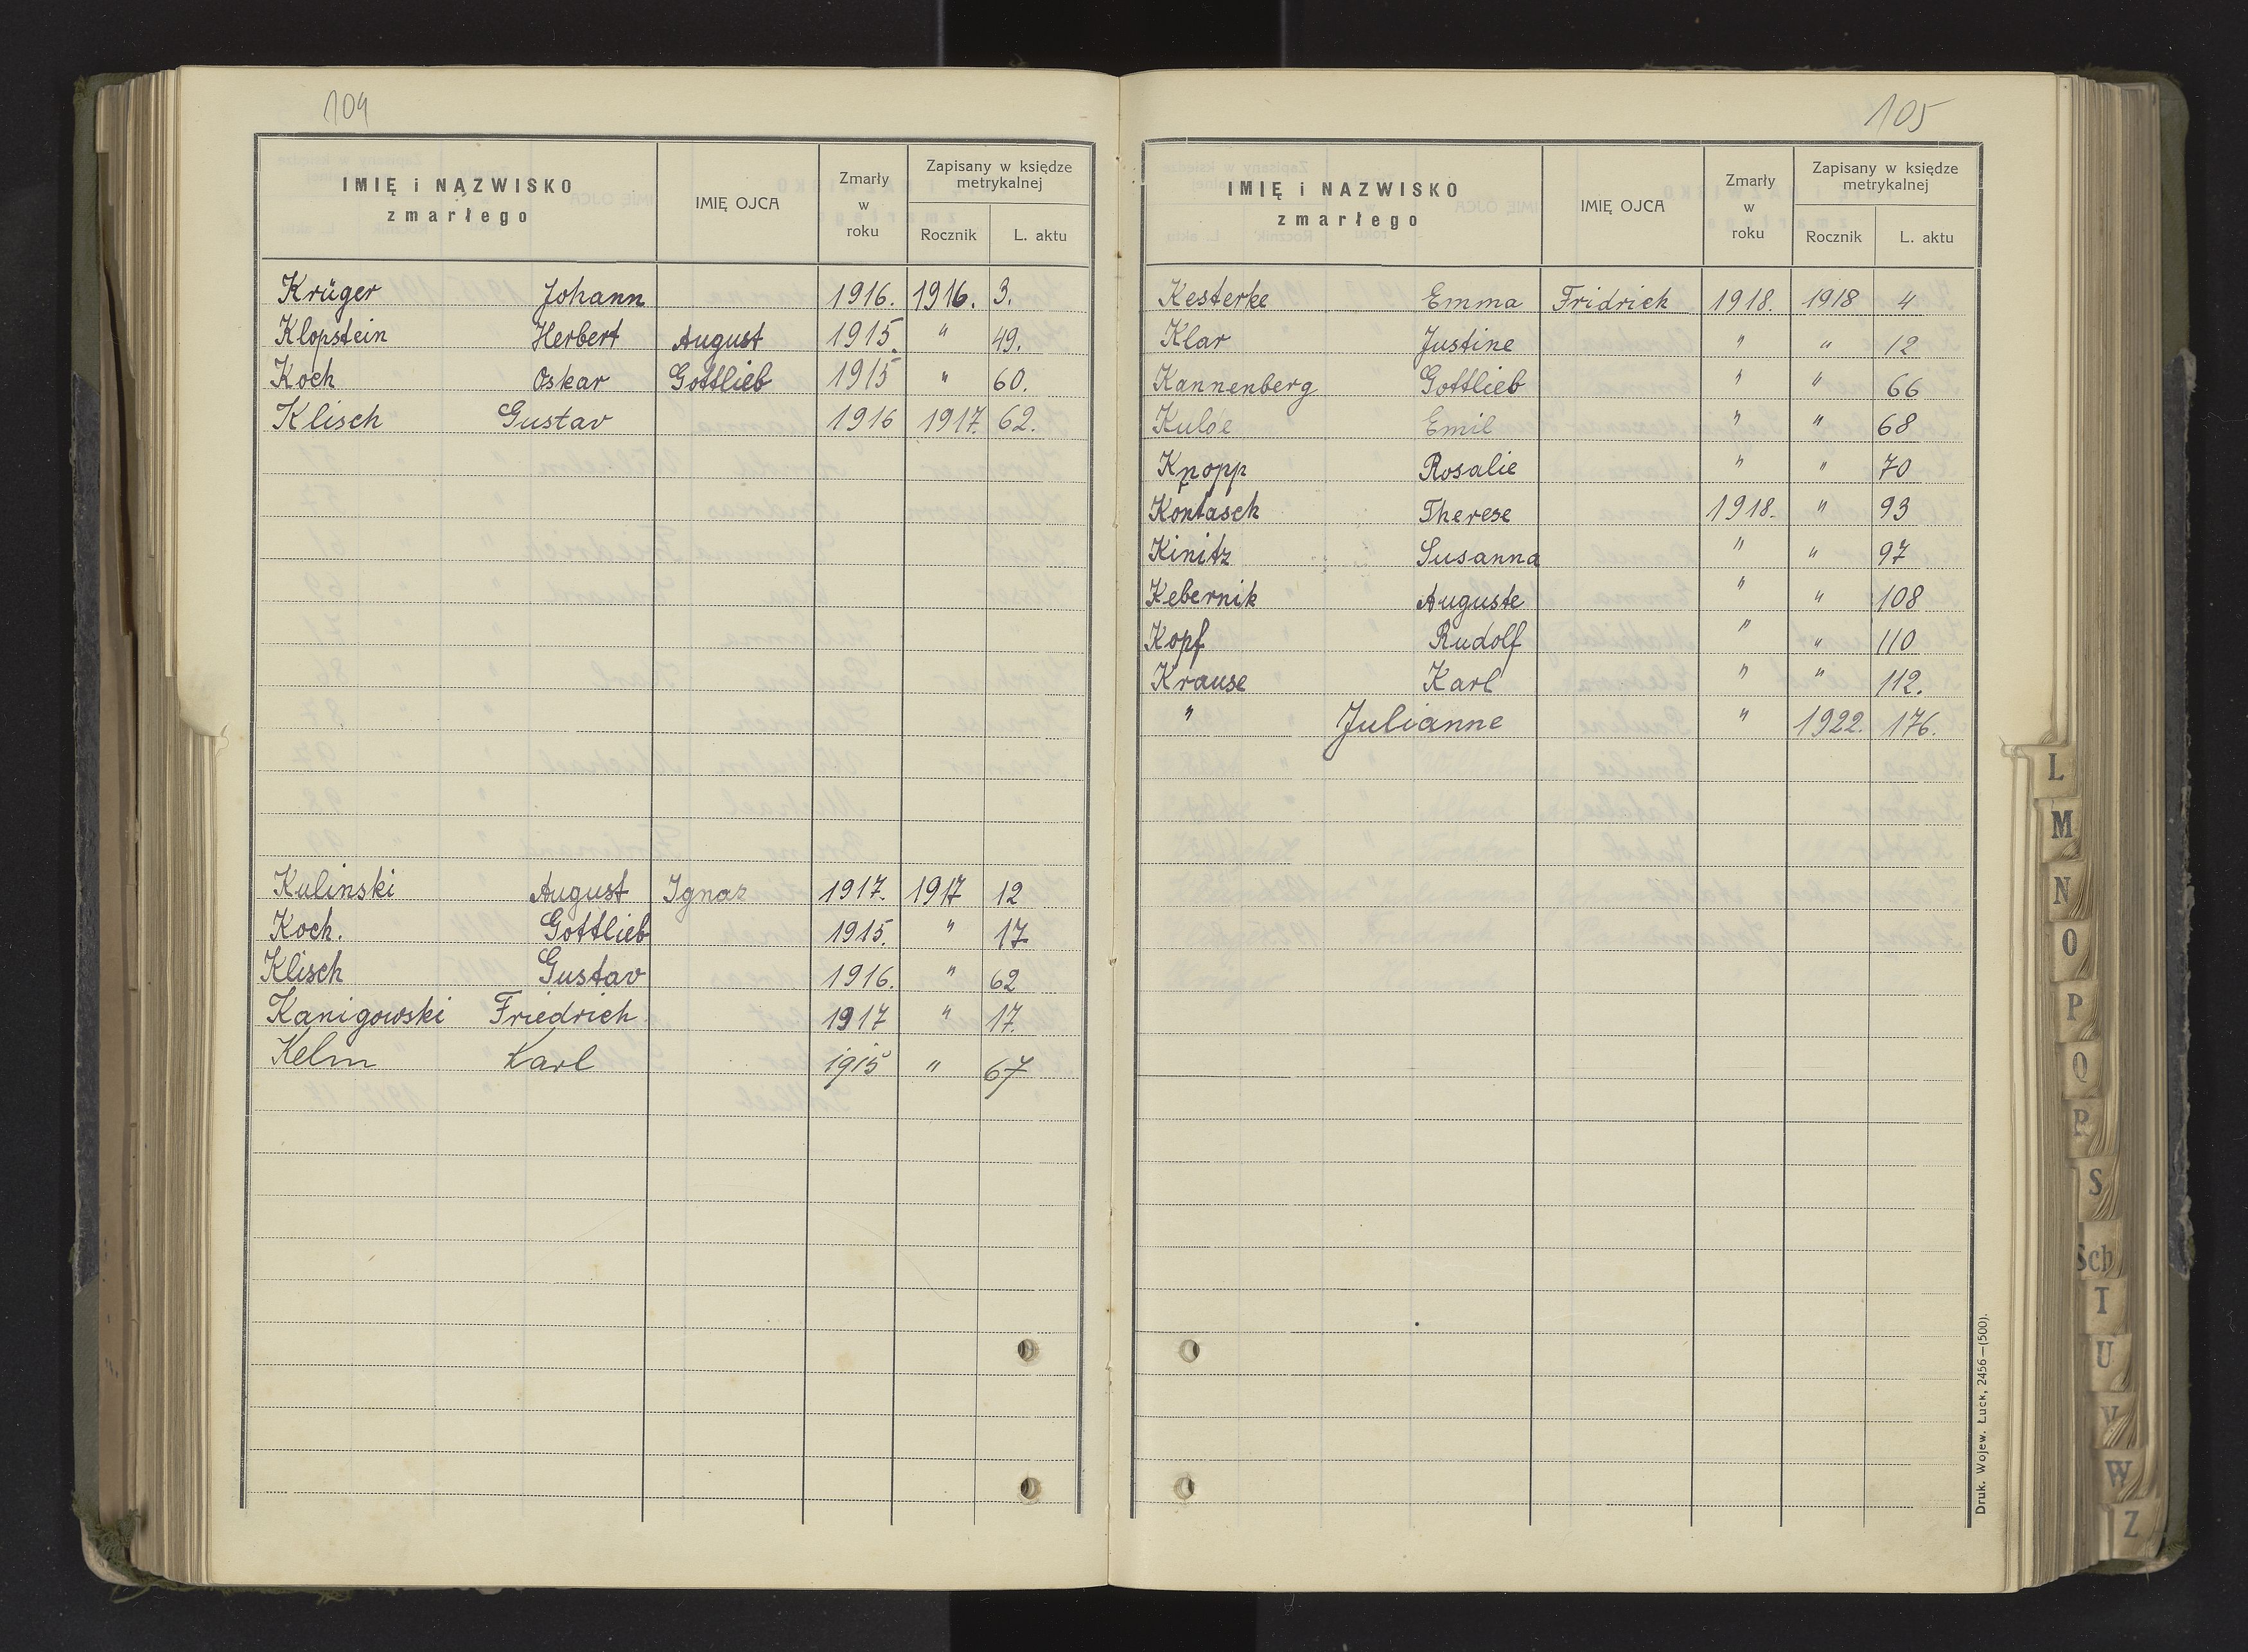 104
IMIĘ i NAZWISKO zmarłego IMIĘ OJCA Zmarły w roku Zapisany w księdze metrykalnej Rocznik L. aktu
Krüger Johann 1916. 1916. 3.
Klopstein Herbert August 1915. " 49.
Koch Oskar Gottlieb 1915 " 60.
Klisch Gustav 1916 1917. 62.
Kulinski August Ignaz 1917. 1917 12
Koch. Gottlieb 1915. " 17
Klisch Gustav 1916. " 62
Kanigowski Friedrich 1917 " 17.
Kelm Karl 1915 " 67
105
IMIĘ i NAZWISKO zmarłego IMIĘ OJCA Zmarły w roku Zapisany w księdze metrykalnej Rocznik L. aktu
Kesterke Emma Fridrich 1918. 1918 4
Klar Justine " " 12
Kannenberg Gottlieb " " 66
Emil " " 68
Knopp Rosalie " " 70
Kontasch Therese 1918. " 93
Kinitz Susanna " " 97
Kebernik Auguste " " 108
Kopf Rudolf " " 110
Krause Karl " " 112.
" Julianne " 1922. 176.
Druk. Wojew. Łuck, 2456—(500).
L
M
N
O
P
Q
R
S
Sch
T
U
V
W
Z